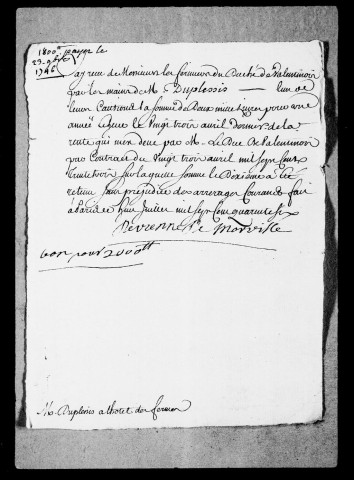 1800ᵗᵗ payé le
23. 9bre
1746
J'ay receu de Messieurs les fermiers du Duché de Valentinois
par les mains de M. Duplessis — l'un de
leurs Cautions la somme de Deux mille Livres pour une
année Echue le vingt trois avril dernier de la
rente qui m'est deue par M. le Duc de Valentinois
par Contrat du vingt trois avril mil sept cent
trente trois sur laquelle somme le Dixieme a été
retenu sans prejudice des arrerages Courants fait
a Paris ce huit Juillet mil sept Cent quarante six
de Morville
bon pour 2000ᵗᵗ
M. Duplessis a l'hotel des fermes